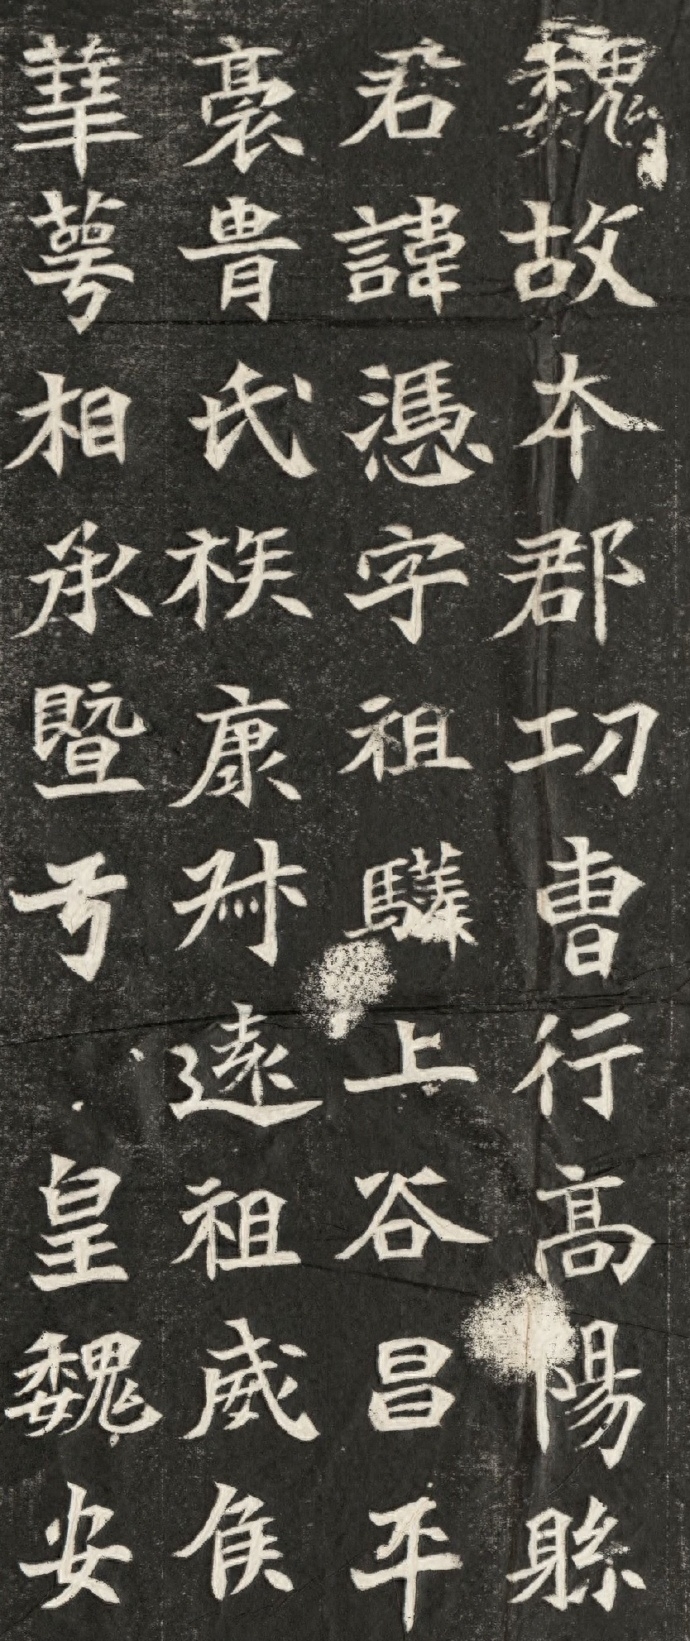 魏故本郡功曹行高陽縣
君諱憑字祖驊上谷昌平
裔胄氏族康叔遠祖威侯
華萼相承暨于皇魏安